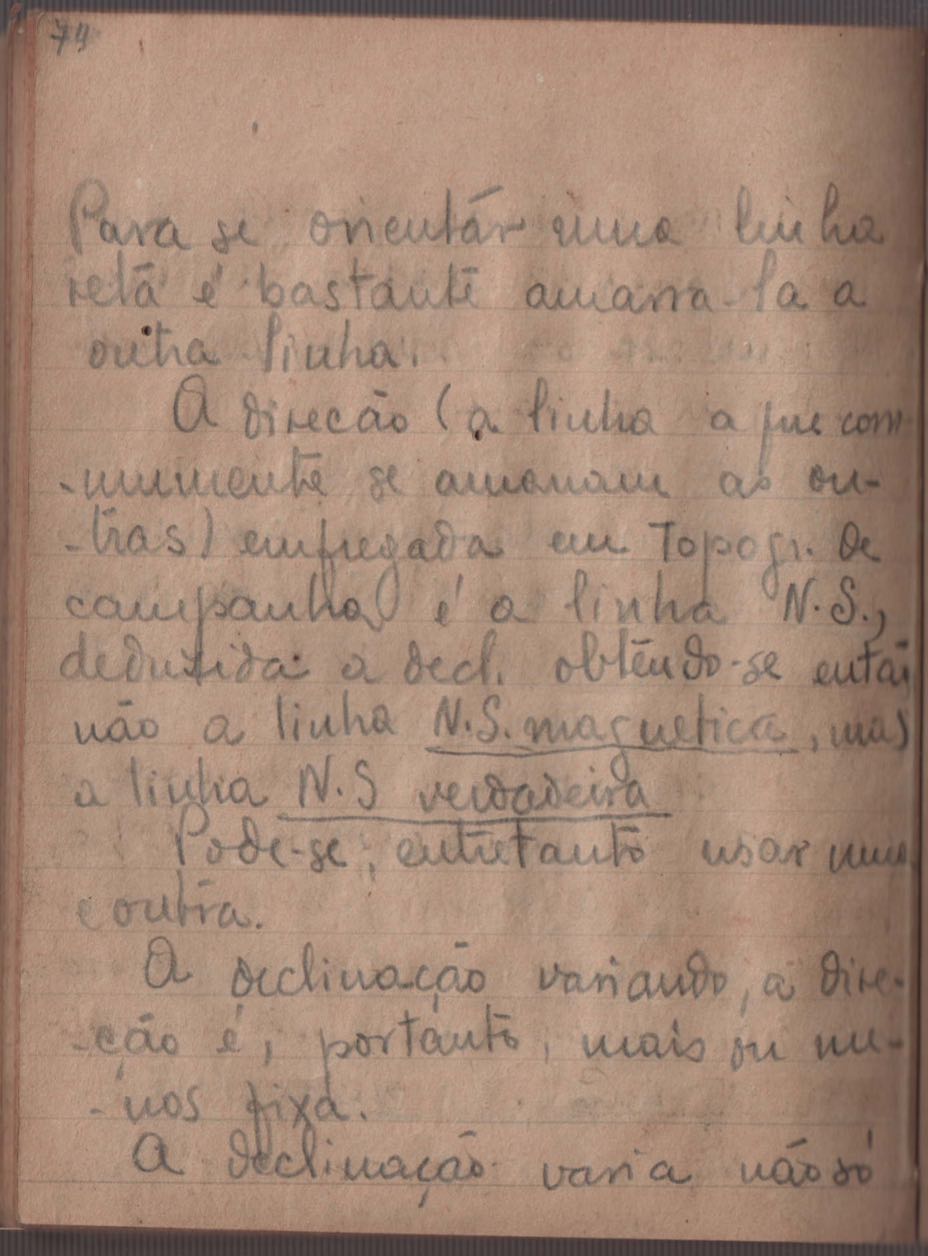 74
Para se orientár uma linha
retã é bastante amarra-la a
outra linha.
A direcão (a linha a que com
-mumente se amarram as ou-
-tras) empregada em Topogr. de
campanha é a linha N.S.,
deduzida a decl. obtendo-se entaõ
não a linha N.S. magnetica, mas
a linha N.S verdadeira
Pode-se, entretanto usar uma
e outra.
A declinação variando, a dire-
-ção é, portanto, mais ou me-
-nos fixa.
A declinação varia não só